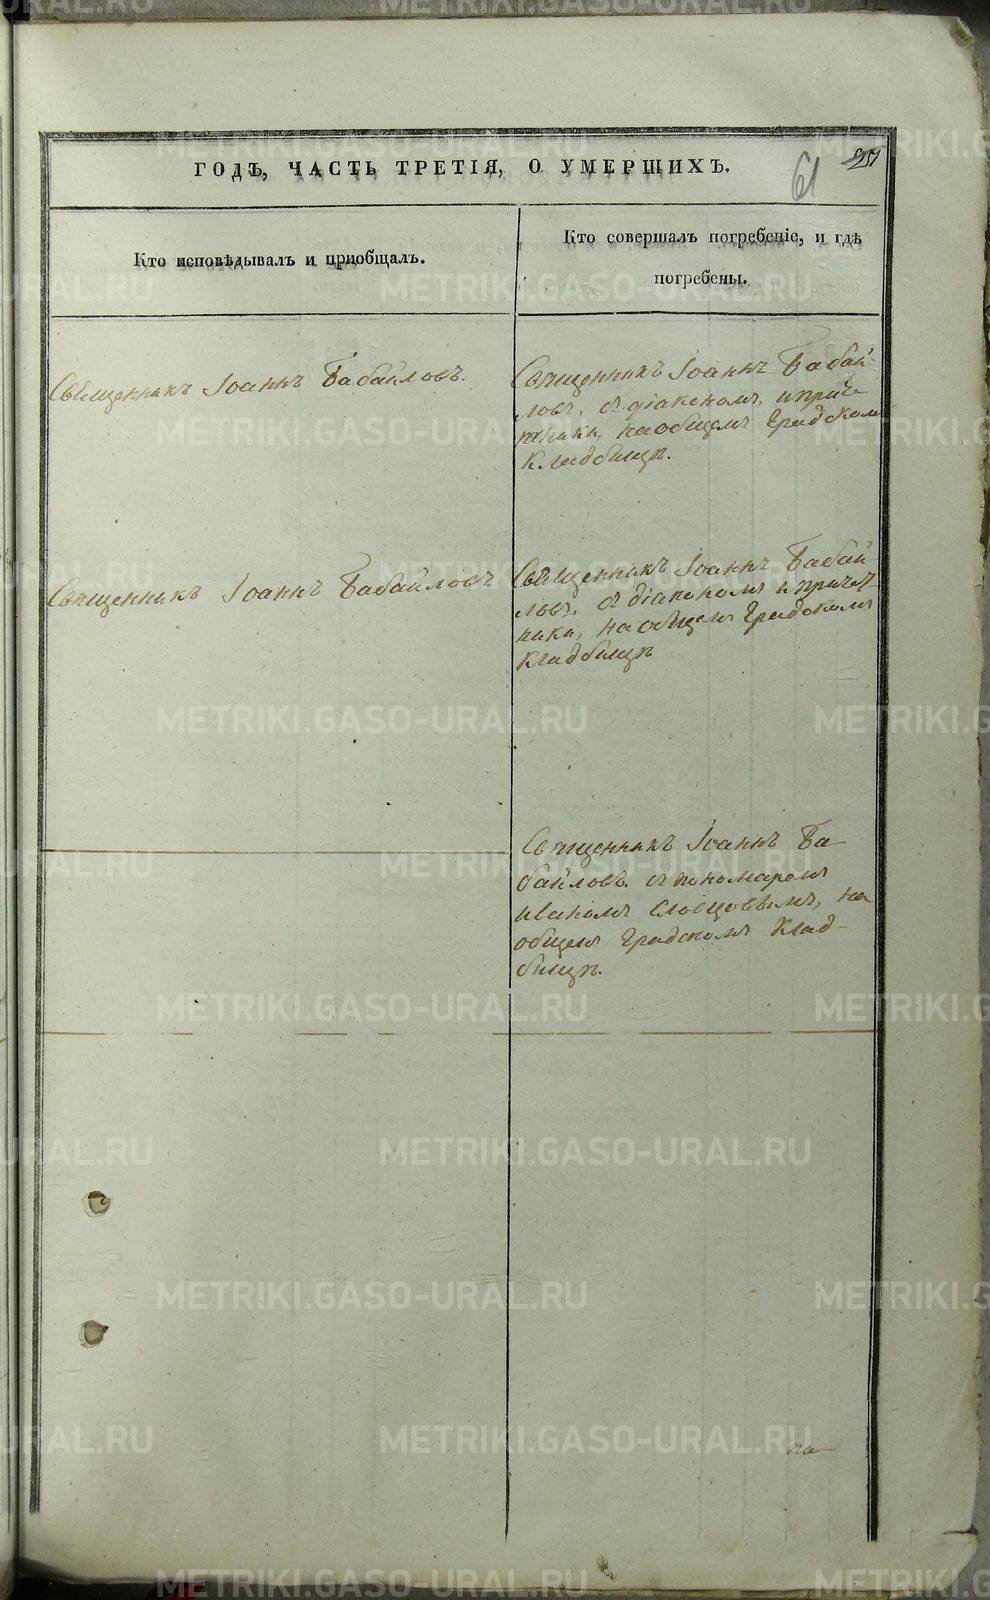 ГОДЪ, ЧАСТЬ ТРЕТІЯ, О УМЕРШИХЪ.
61
Кто исповѣдывалъ и пріобщалъ.
Кто совершалъ погребеніе, и гдѣ
погребены.
Священникъ Іоаннъ Бабайловъ.
Священникъ Іоаннъ Бабай
ловъ, съ діакономъ, и приче
тники, на общемъ Градском
кладбищѣ.
Священникъ Іоаннъ Бабайловъ
Священникъ Іоаннъ Бабай-
ловъ, съ діакономъ и причет
ники, на общемъ Градскомъ
кладбищѣ
Священникъ Іоаннъ Ба-
байловъ съ пономаремъ
Иваномъ Словцовымъ, на
общемъ Градскомъ Клад-
бищѣ.
METRIKI.GASO-URAL.RU